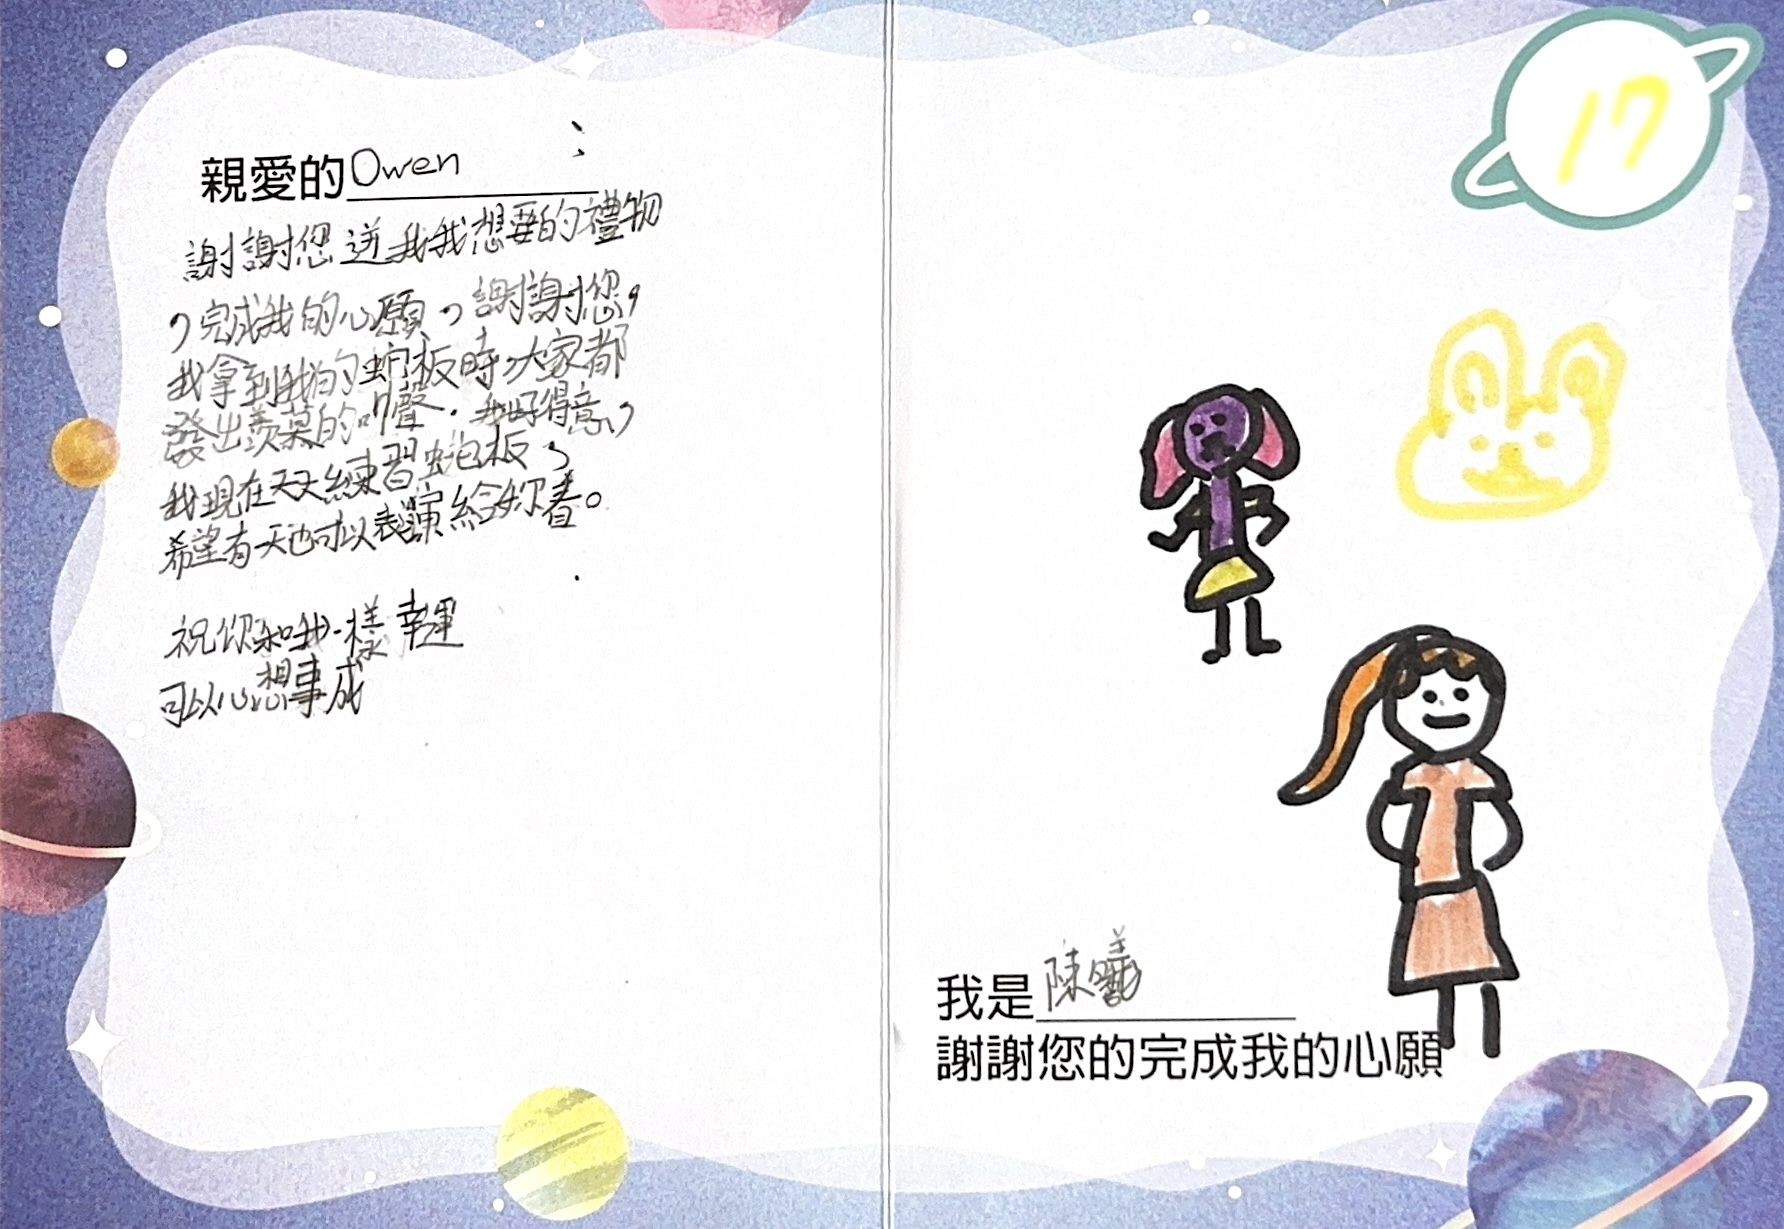 親愛的Owen：
謝謝您送我我想要的禮物
，完成我的心願，謝謝您，
我拿到我的蛇板時，大家都
發出羨慕的叫聲，我好得意，
我現在天天練習蛇板，
希望有一天也可以表演給妳看。
祝你和我一樣幸運
可以心想事成
17
我是陳曦
謝謝您的完成我的心願